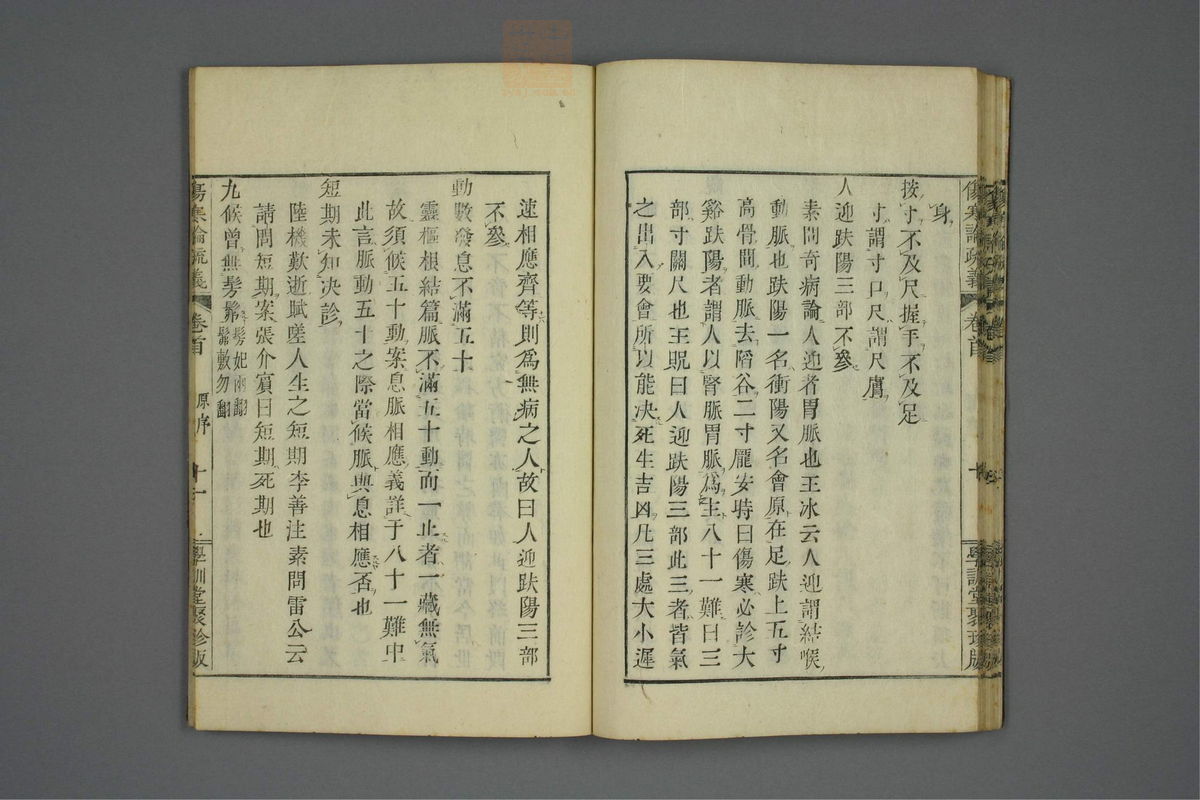 傷寒論疏義
卷首
學訓堂聚珍版
身
按寸不及尺握手不及足
寸謂寸口尺謂尺膚
人迎趺陽三部不參
素問奇病論人迎者胃脈也王冰云人迎謂結喉
動脈也趺陽一名衝陽又名會原在足趺上五寸
高骨間動脈去陷谷二寸龐安時曰傷寒必診太
谿趺陽者謂人以腎脈胃脈爲主八十一難曰三
部寸關尺也王貺曰人迎趺陽三部此三者皆氣
之出入要會所以能決死生吉凶凡三處大小遲
速相應齊等則爲無病之人故曰人迎趺陽三部
不參
動數發息不滿五十
靈樞根結篇脈不滿五十動而一止者一藏無氣
故須候五十動案息脈相應義詳于八十一難中
此言脈動五十之際當候脈與息相應否也
短期未知決診
陸機歎逝賦嗟人生之短期李善注素問雷公云
請問短期案張介賓曰短期死期也
九候曾無髣髴髣妃兩翻
髴敷勿翻
傷寒論疏義
卷首
原序
十一
學訓堂聚珍版